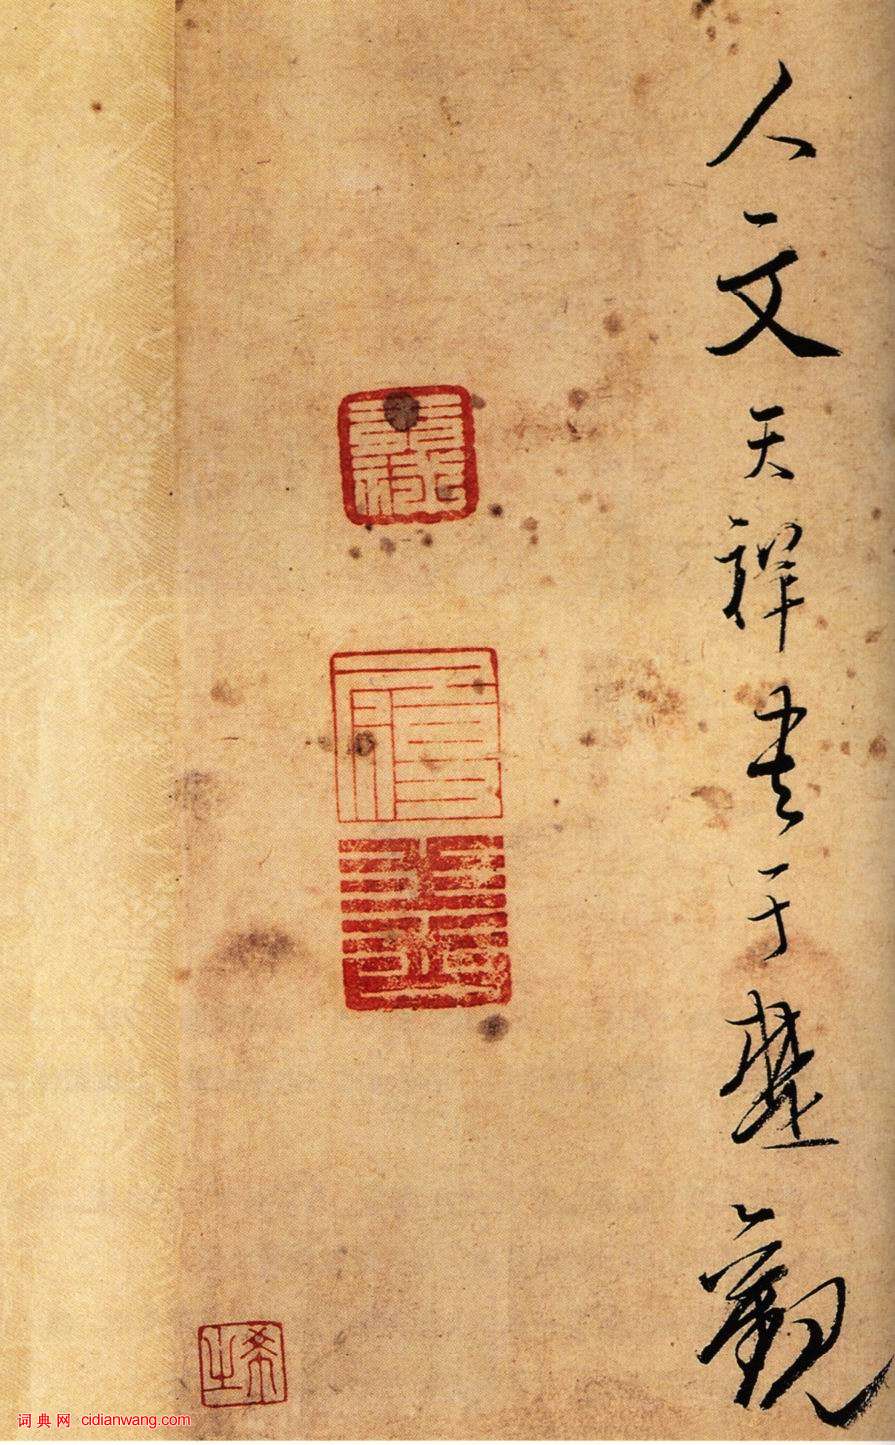 人文天祥書于楚觀
希之
词典网 cidianwang.com